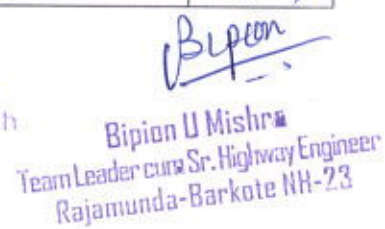 Bipion
h
Bipion U Mishra
Team Leader cum Sr. Highway Engineer
Rajamunda-Barkote NH-23